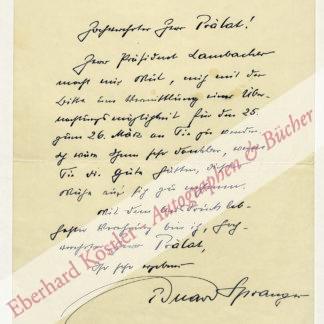 Hochverehrter Herr Prälat!
Herr Präsident Lambacher
macht mir Mut, mich mit der
Bitte um Vermittlung einer Über-
nachtungsmöglichkeit für den 25.
zum 26. März an Sie zu wenden.
Ich wäre Ihnen sehr dankbar, wenn
Sie die Güte hätten, diese
Mühe auf sich zu nehmen.
Mit dem Ausdruck leb-
hafter Verehrung bin ich, hoch-
verehrter Herr Prälat,
Ihr sehr ergebener
Eduard Spranger
Eberhard Köstler - Autographen & Bücher